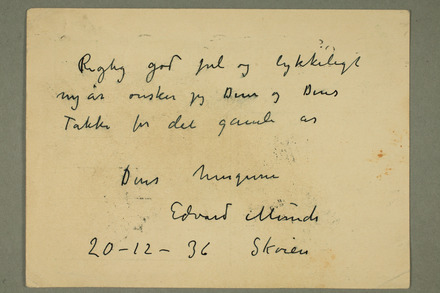 Rigtig god jul og lykkeligt
nyår ønsker jeg Dem og Deres
Takker for det gamle år
Deres
Edvard Munch
20-12-36 Skøien